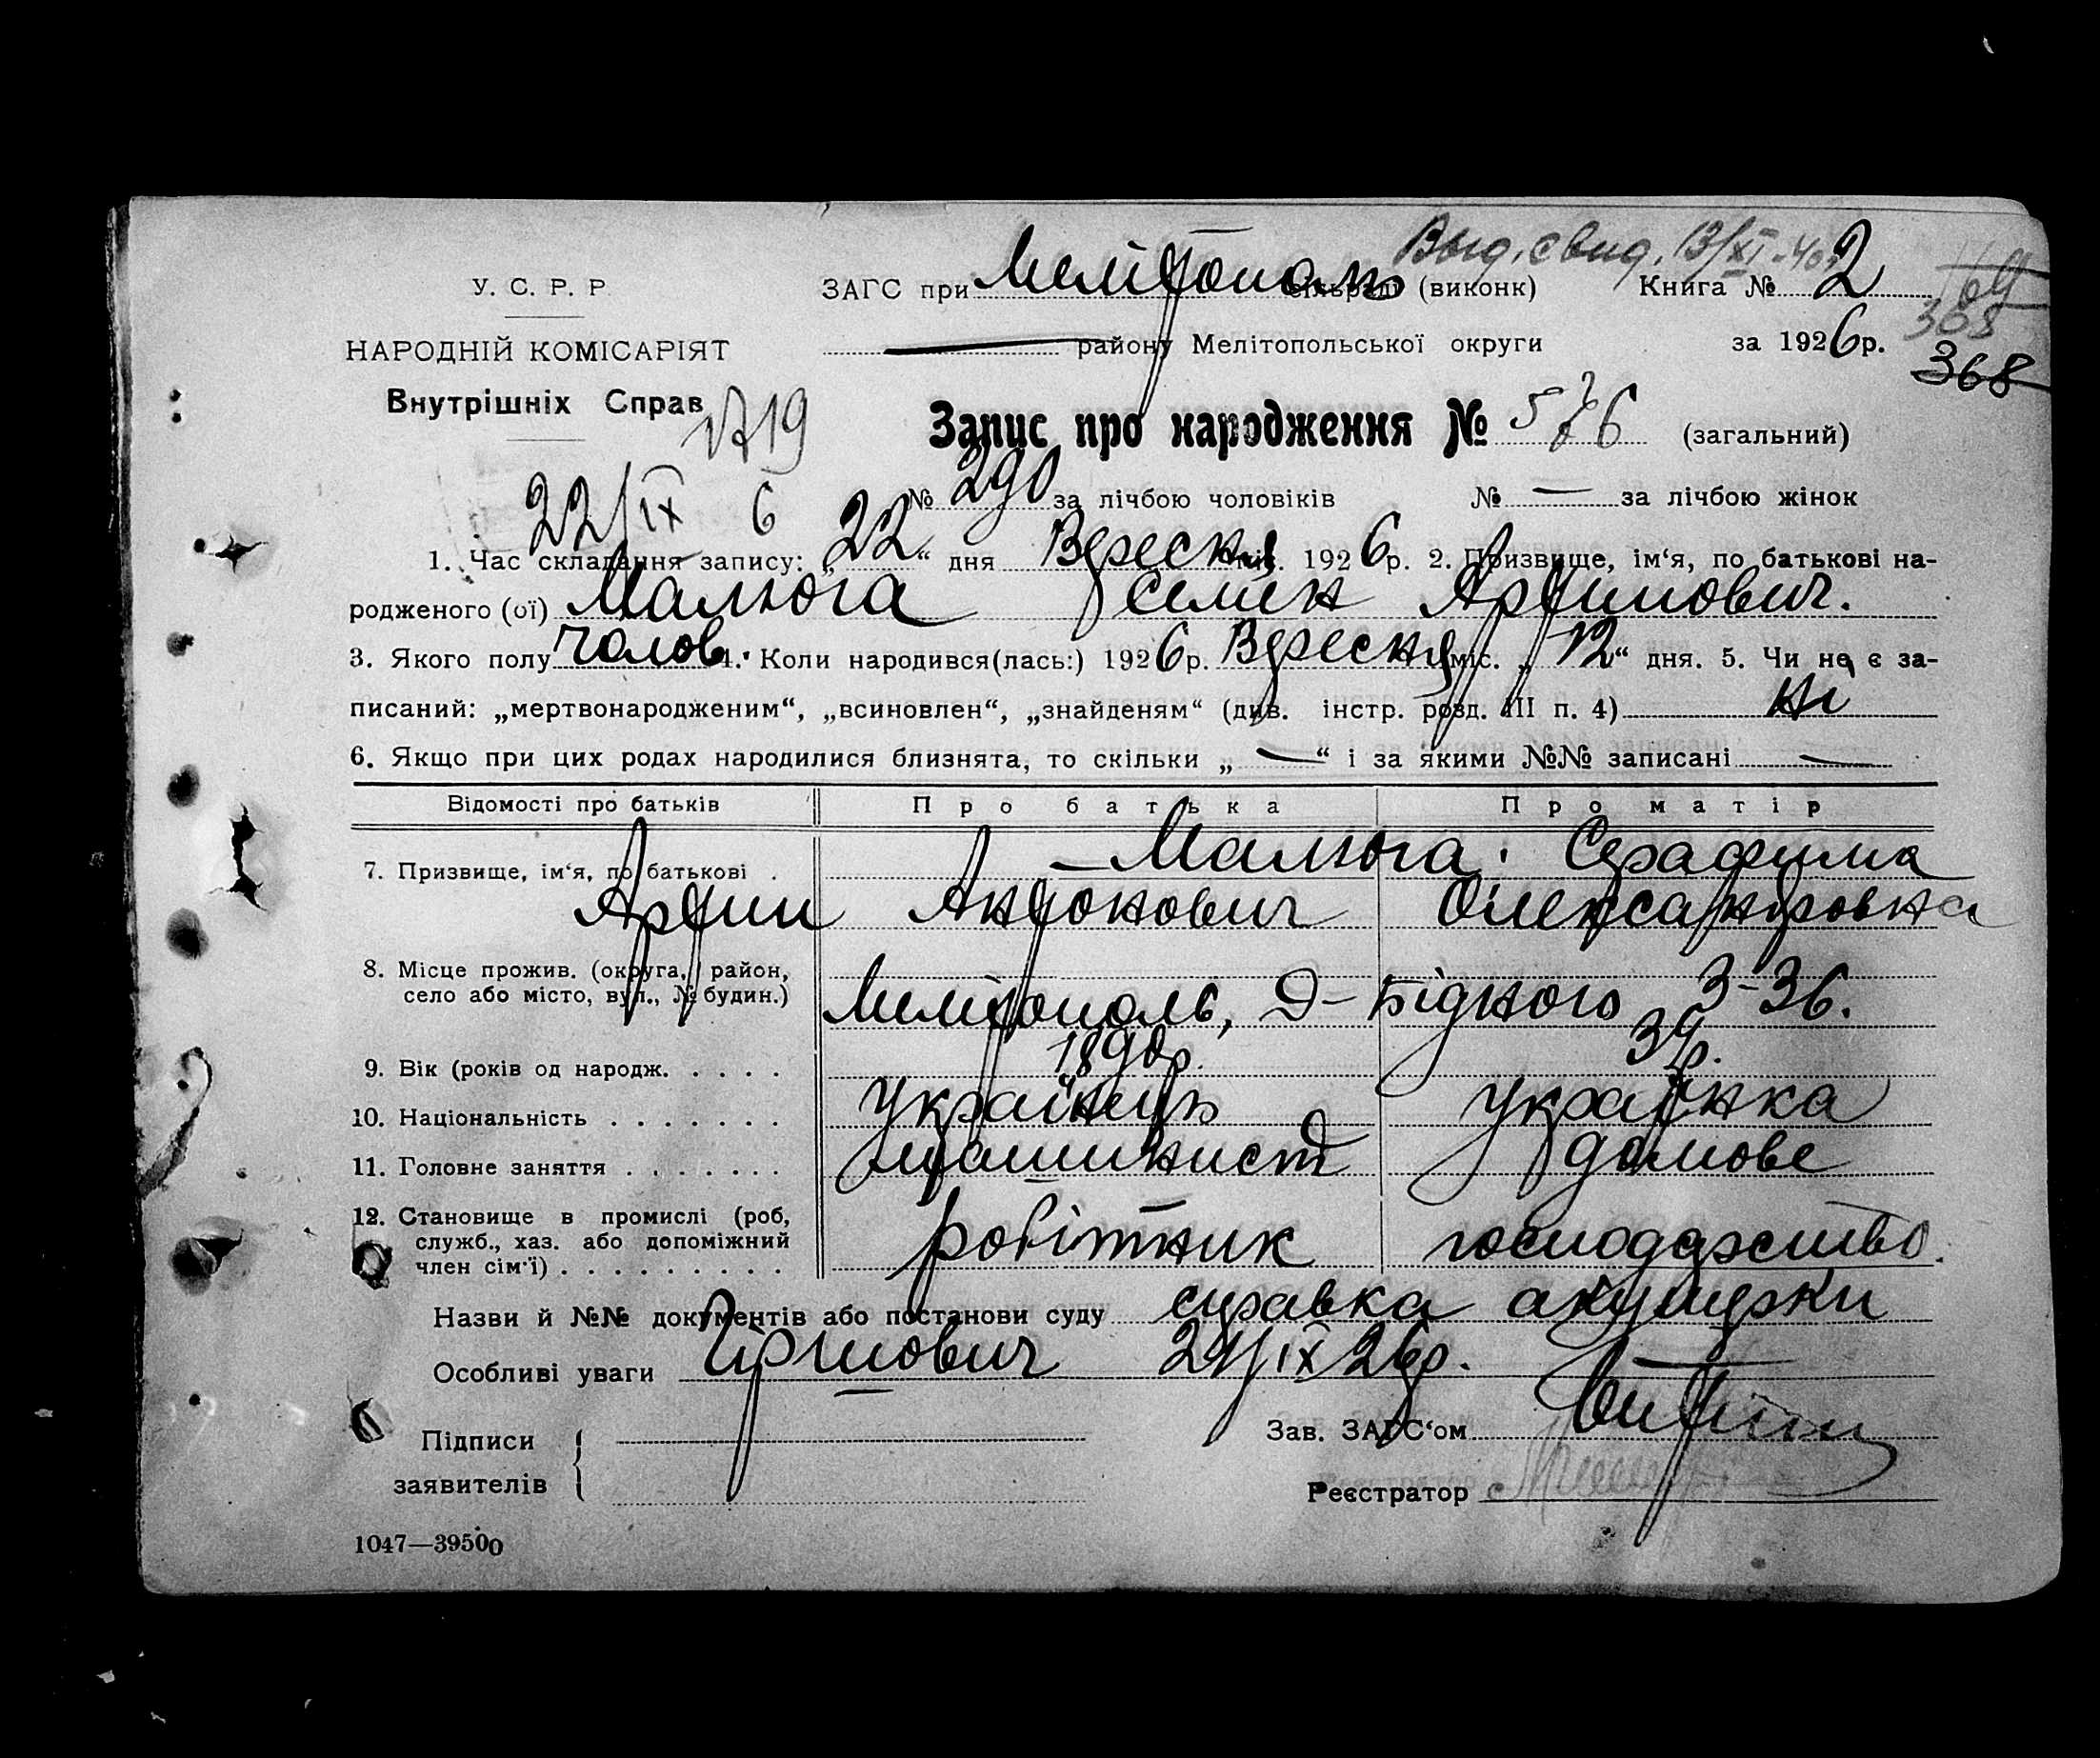 Выд. свид. 13/XI-40
У. С. Р. Р.
ЗАГС при Мелітополь сільраді (виконк) Книга № 2
368
НАРОДНІЙ КОМІСАРІЯТ
району Мелітопольської округи за 1926 р.
368
Внутрішніх Справ
Запис про народження № 576 (загальний)
22/IX 6
№ 290 за лічбою чоловіків № — за лічбою жінок
1. Час складання запису: „22“ дня Вересня міс. 1926 р. 2. Призвище, ім‘я, по батькові на-
родженого (ої) Малюга Семен Артипович.
3. Якого полу чолов. 4. Коли народився(лась:) 1926 р. Вересня міс. „12“ дня. 5. Чи не є за-
писаний: „мертвонародженим“, „всиновлен“, „знайденям“ (див. інстр. розд. III п. 4) ні
6. Якщо при цих родах народилися близнята, то скільки „—“ і за якими №№ записані —
Відомості про батьків Про батька Про матір
— Малюга. Серафима
7. Призвище, ім‘я, по батькові .
Артип Антонович Олександровна
8. Місце прожив. (округа, район,
село або місто, вул., № будин.)
Мелітополь, Д-Бідного 3-36.
9. Вік (років од народж. . . . . 1890р. 34р.
10. Національність . . . . . . . Українець Українка
11. Головне заняття . . . . . . . машинист домове
12. Становище в промислі (роб,
служб., хаз. або допоміжний
член сім‘ї) . . . . . . . . . робітник господарство.
Назви й №№ документів або постанови суду справка акушерки
Особливі уваги 21/IX 26р.
Підписи
заявителів
Зав. ЗАГС‘ом
Реєстратор
1047—39500